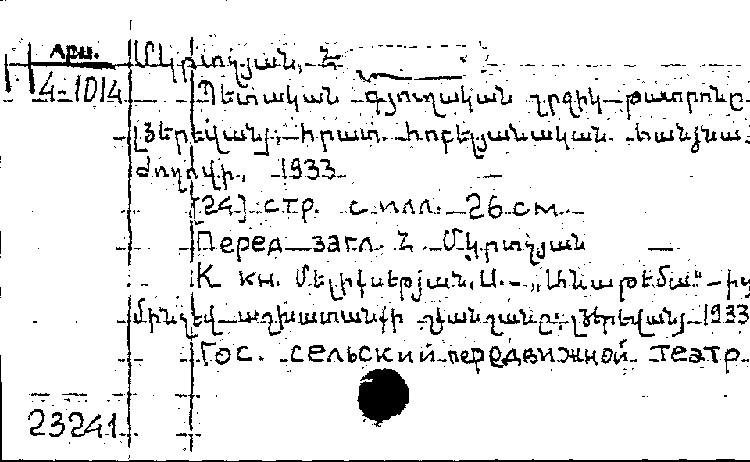 Арм.
4-1014
Մկրտչյան, Ն
Պետական գյուղական շրջիկ թատրոնը
[Յերեվան], հրատ. հոբելյանական հանձնա-
ժողովի, 1933
[24] стр. с илл. 26 см
Перед загл. Ն. Մկրտչյան
К кн. Մելիքսեթյան, Ս. — „Անաթեմա"
մինչեվ աշխատանքի [Յերեվան] 1933
Гос. сельский передвижной театр
23241